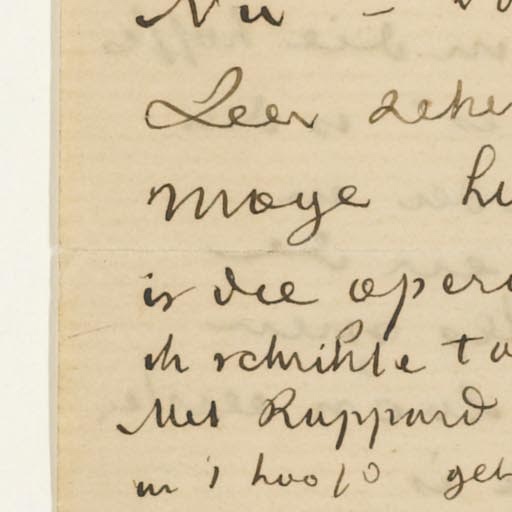 Nu –
Zeer zeke
moge hi
is die opera
ik schrikte to
Met Rappard
in 't hoofd geb